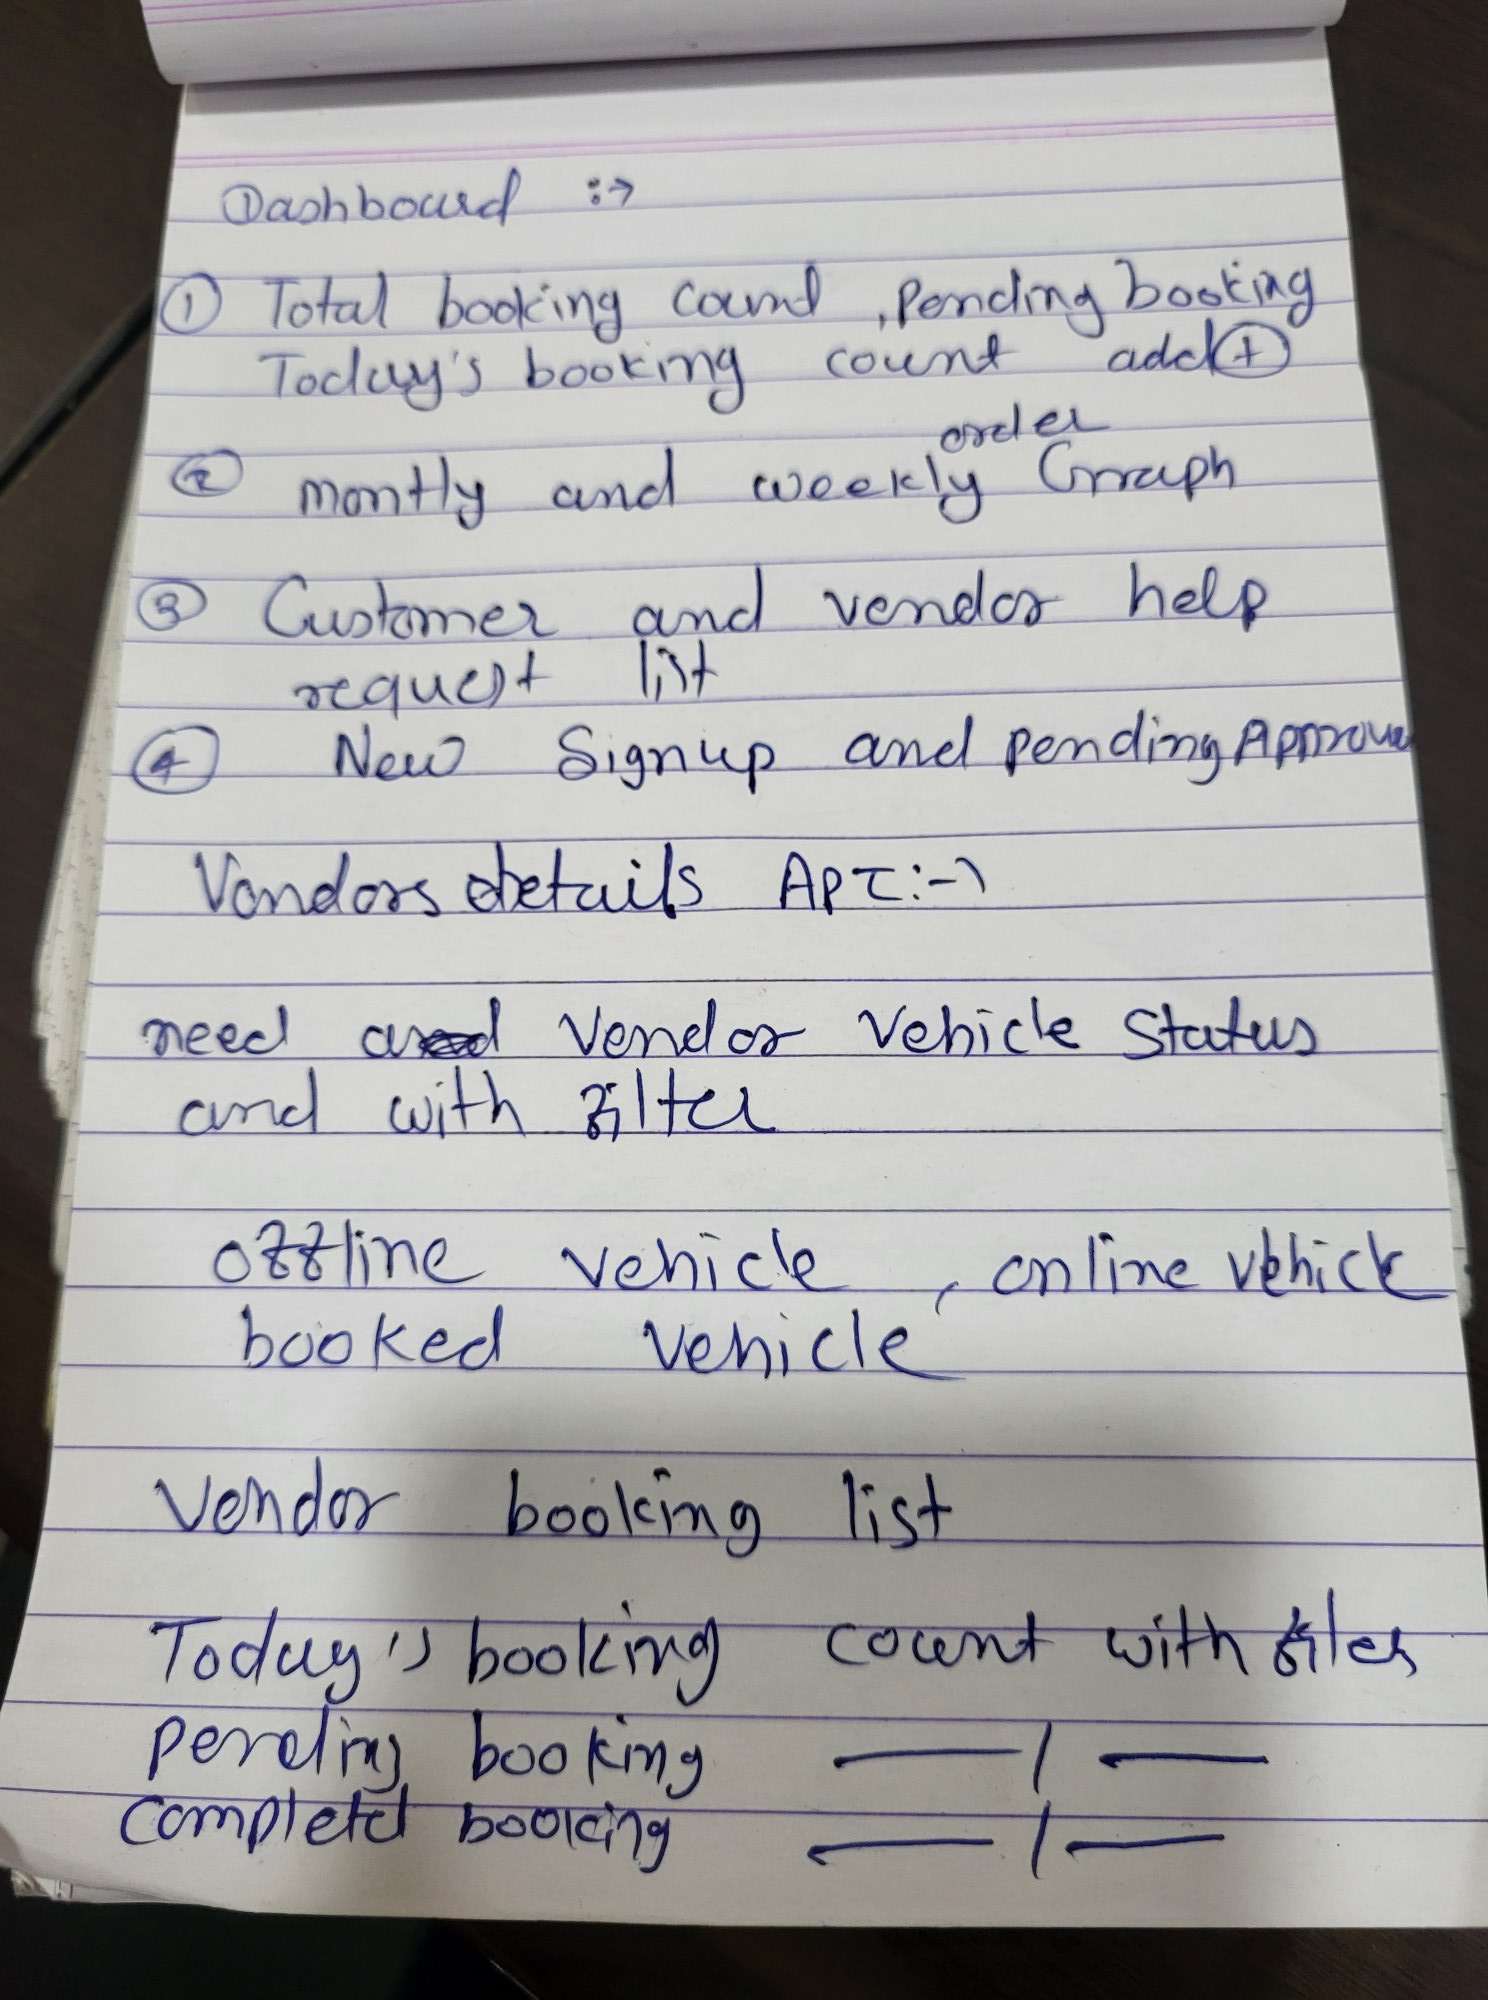 Dashboard :→
① Total booking count, Pending booking
Today's booking count add ⊕
order
② montly and weekly Graph
③ Customer and vendor help
request list
④ New Signup and Pending Approval
Vendors details API :-
need vendor vehicle status
and with filter
offline vehicle, online vehicle
booked vehicle
Vendor booking list
Today's booking count with filter
pending booking —/—
completed booking —/—